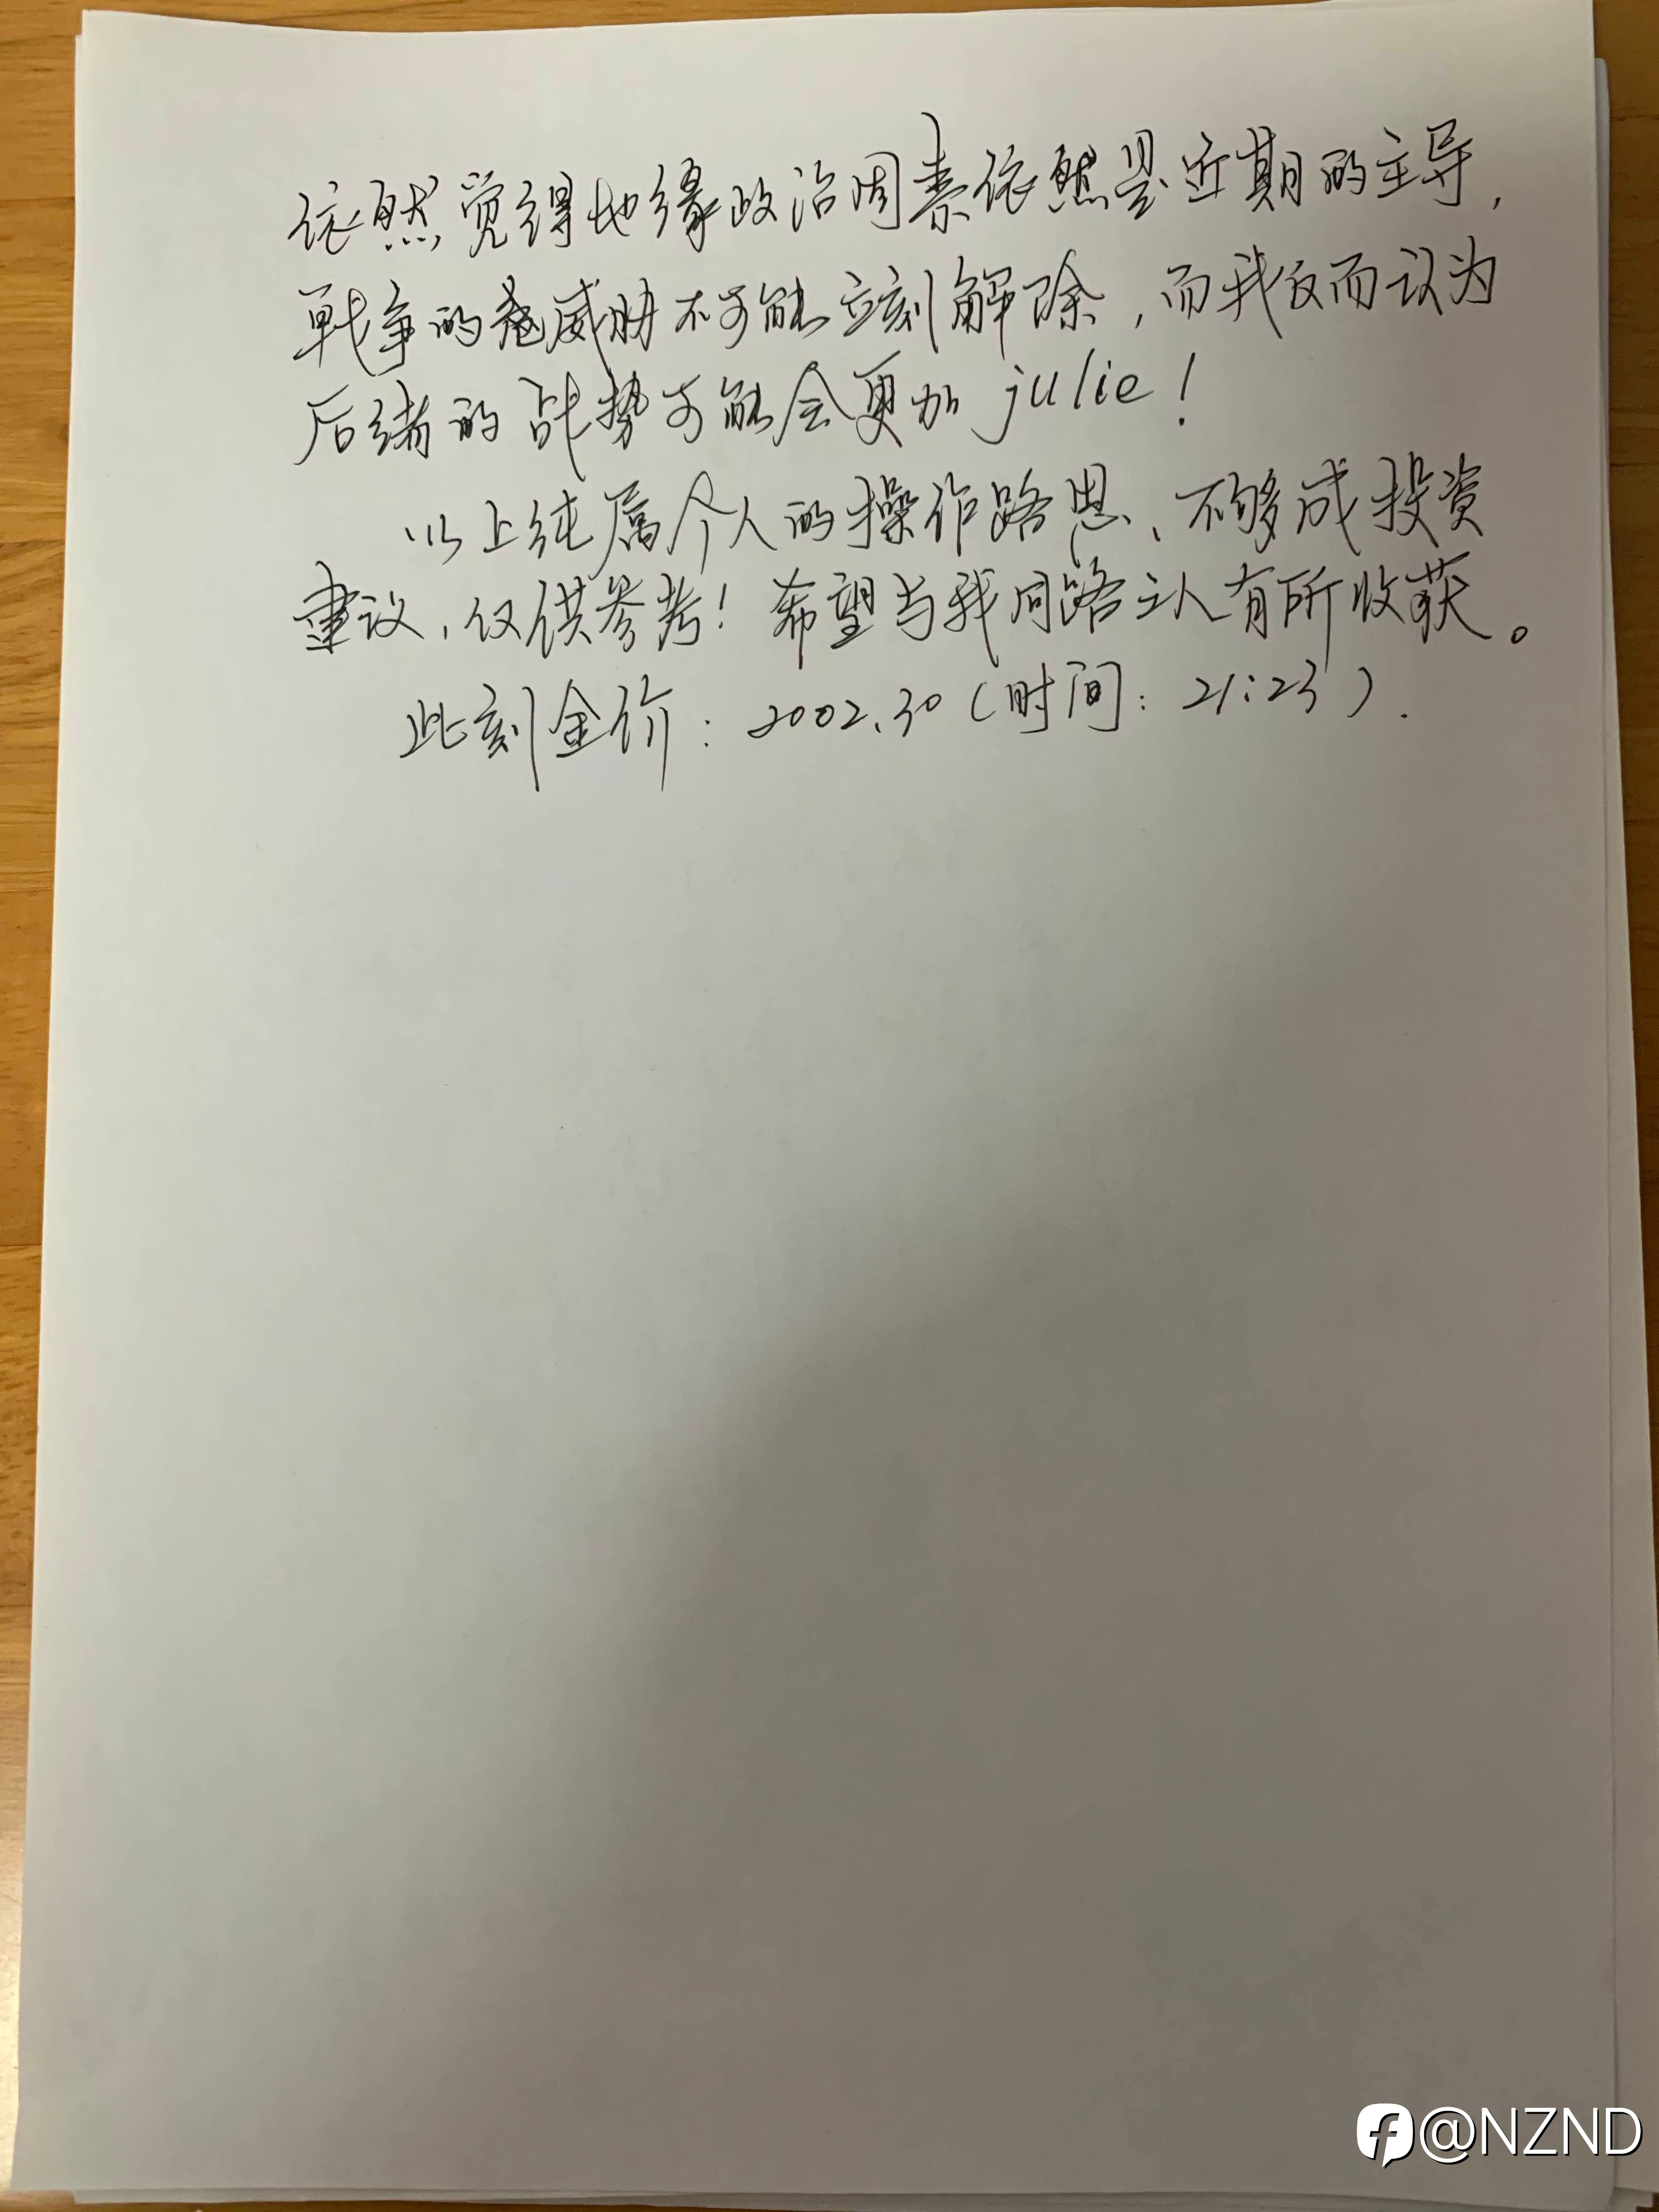 依然觉得地缘政治因素依然是近期的主导，
战争的威胁不可能立刻解除，而我反而认为
后续的战势可能会更加julie！
以上纯属个人的操作路思、不够成投资
建议，仅供参考！希望与我同路之人有所收获。
此刻金价：2002.30（时间：21:23）.
@NZND